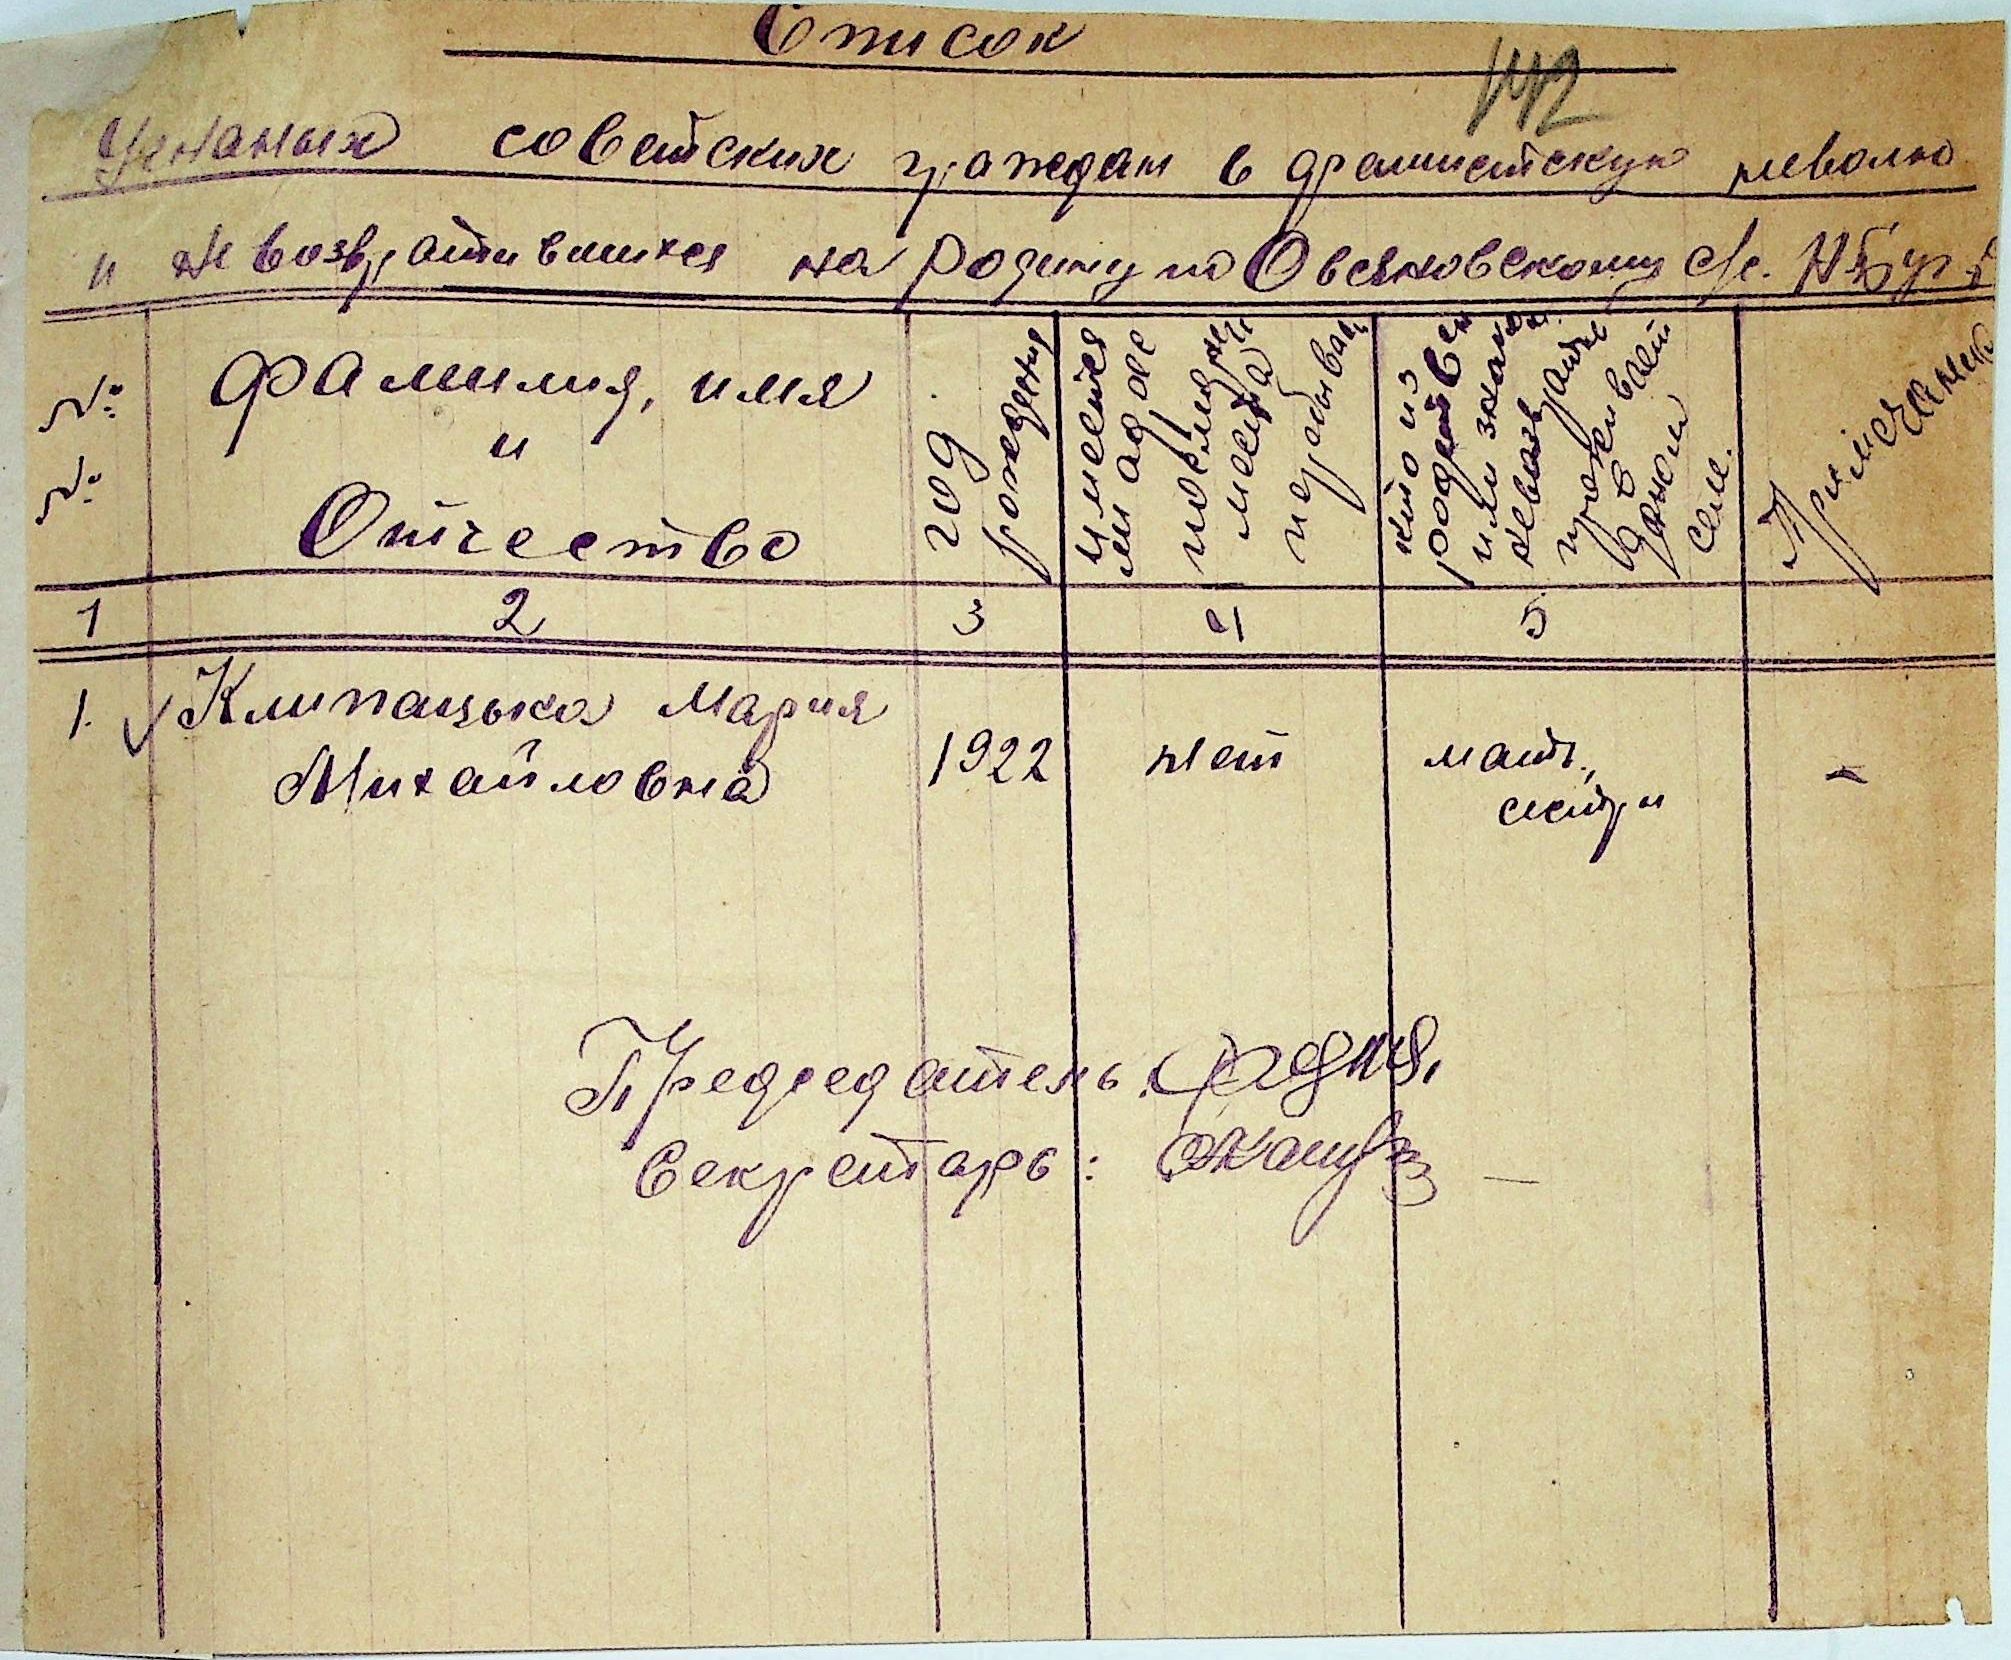 Список
142
Угнаных советских граждан в фашистскую неволю
и не возвратившихся на Родину по Овсяновскому с/с.
№ №
Фамилия, имя
и
Отчество
год рождения
Имеется
ли адрес
последнего
места
пребыван
кто из
родствен
или знаком.
невозвратив
проживает
в
даном
селе.
Примечание
1 2 3 4 5
1. Клипацька Мария
Михайловна
1922 нет мать,
сестри
-
Председатель
Секретарь: